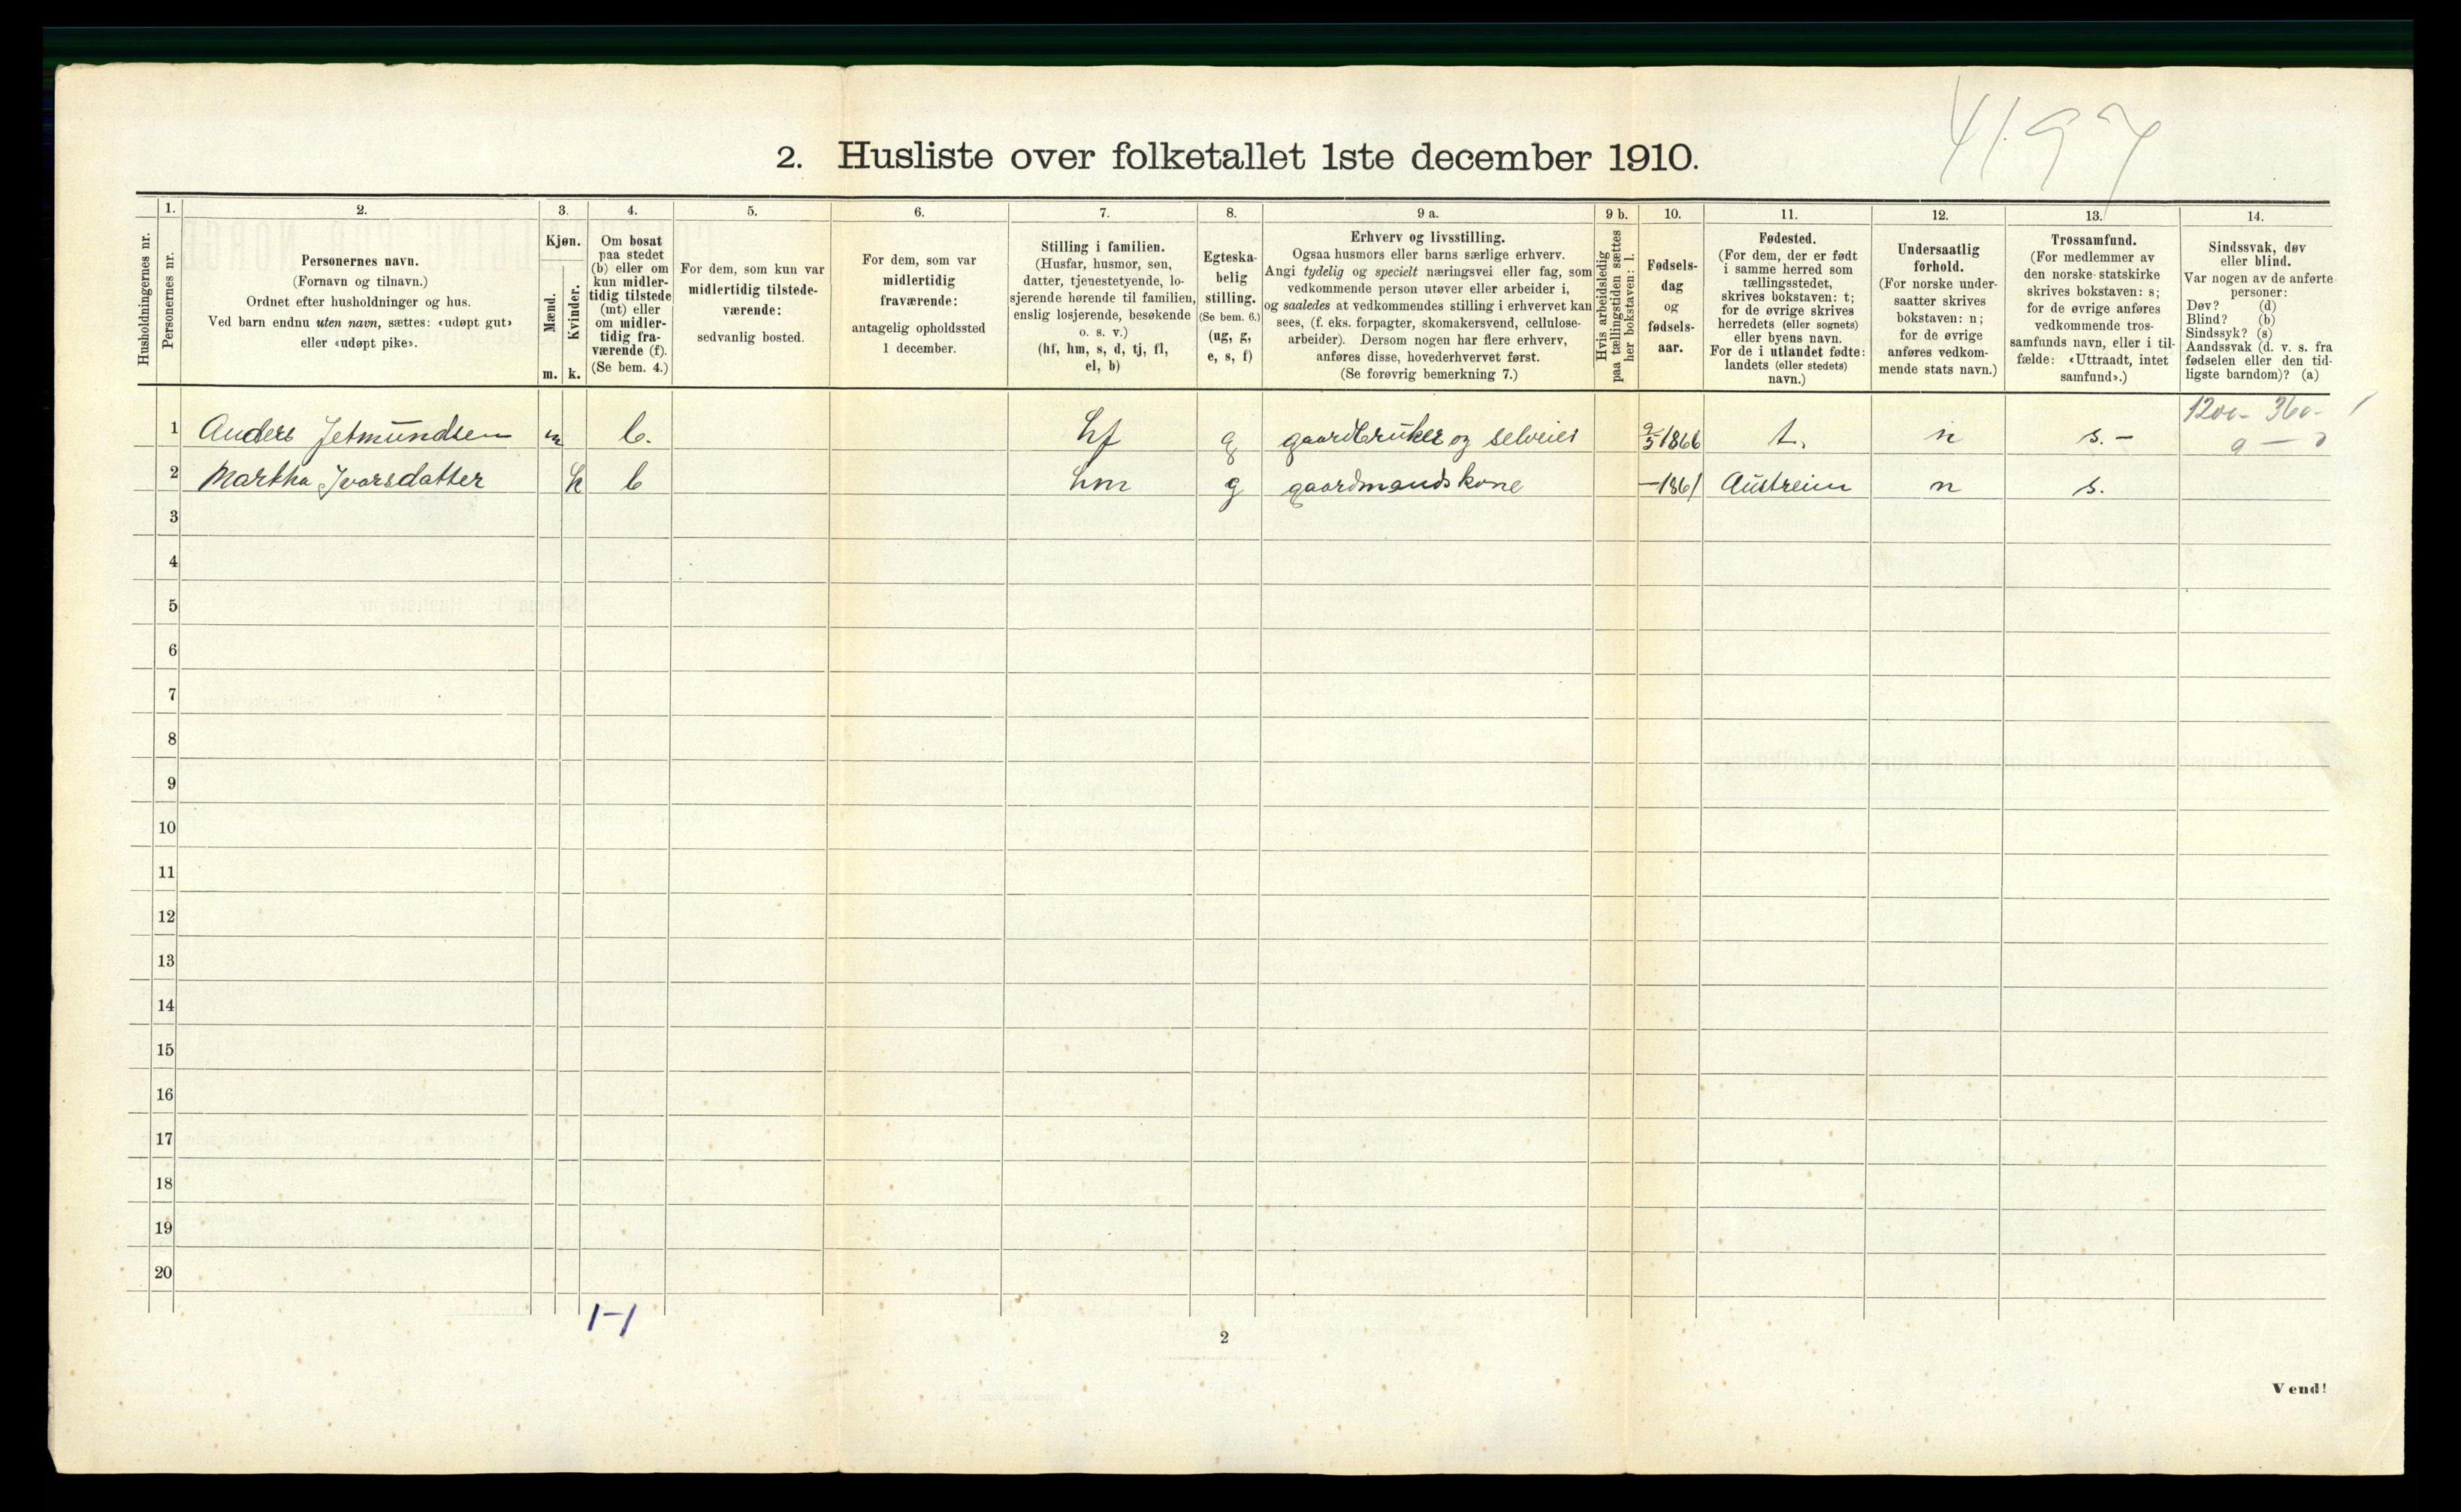 4197
2. Husliste over folketallet 1ste december 1910.
Husholdningernes nr.
1.
Personernes nr.
2.
Personernes navn.
(Fornavn og tilnavn.)
Ordnet efter husholdninger og hus.
Ved barn endnu uten navn, sættes: «udøpt gut»
eller «udøpt pike».
3.
Kjøn.
Mænd.
Kvinder.
m. k.
4.
Om bosat
paa stedet
(b) eller om
kun midler-
tidig tilstede
(mt) eller
om midler-
tidig fra-
værende (f).
(Se bem. 4.)
5.
For dem, som kun var
midlertidig tilstede-
værende:
sedvanlig bosted.
6.
For dem, som var
midlertidig
fraværende:
antagelig opholdssted
1 december.
7.
Stilling i familien.
(Husfar, husmor, søn,
datter, tjenestetyende, lo-
sjerende hørende til familien,
enslig losjerende, besøkende
o. s. v.)
(hf, hm, s, d, tj, fl,
el, b)
8.
Egteska-
belig
stilling.
(Se bem. 6.)
(ug, g,
e, s, f)
9 a.
Erhverv og livsstilling.
Ogsaa husmors eller barns særlige erhverv.
Angi tydelig og specielt næringsvei eller fag, som
vedkommende person utøver eller arbeider i,
og saaledes at vedkommendes stilling i erhvervet kan
sees, (f. eks. forpagter, skomakersvend, cellulose-
arbeider). Dersom nogen har flere erhverv,
anføres disse, hovederhvervet først.
(Se forøvrig bemerkning 7.)
9 b.
Hvis arbeidsledig
paa tællingstiden sættes
her bokstaven: l.
10.
Fødsels-
dag
og
fødsels-
aar.
11.
Fødested.
(For dem, der er født
i samme herred som
tællingsstedet,
skrives bokstaven: t;
for de øvrige skrives
herredets (eller sognets)
eller byens navn.
For de i utlandet fødte:
landets (eller stedets)
navn.)
12.
Undersaatlig
forhold.
(For norske under-
saatter skrives
bokstaven: n;
for de øvrige
anføres vedkom-
mende stats navn.)
13.
Trossamfund.
(For medlemmer av
den norske statskirke
skrives bokstaven: s;
for de øvrige anføres
vedkommende tros-
samfunds navn, eller i til-
fælde: «Uttraadt, intet
samfund».)
14.
Sindssvak, døv
eller blind.
Var nogen av de anførte
personer:
Døv? (d)
Blind? (b)
Sindssyk? (s)
Aandssvak (d. v. s. fra
fødselen eller den tid-
ligste barndom)? (a)
1200- 360-
1 Anders Jetmundsen m b. hf g gaardbruker og selveier 9/5 1866 t. n s. -
2 Martha Ivarsdatter k b hm g gaardmandskone -1861 Austreim n s.
3
4
5
6
7
8
9
10
11
12
13
14
15
16
17
18
19
20
1-1
2
Vend!